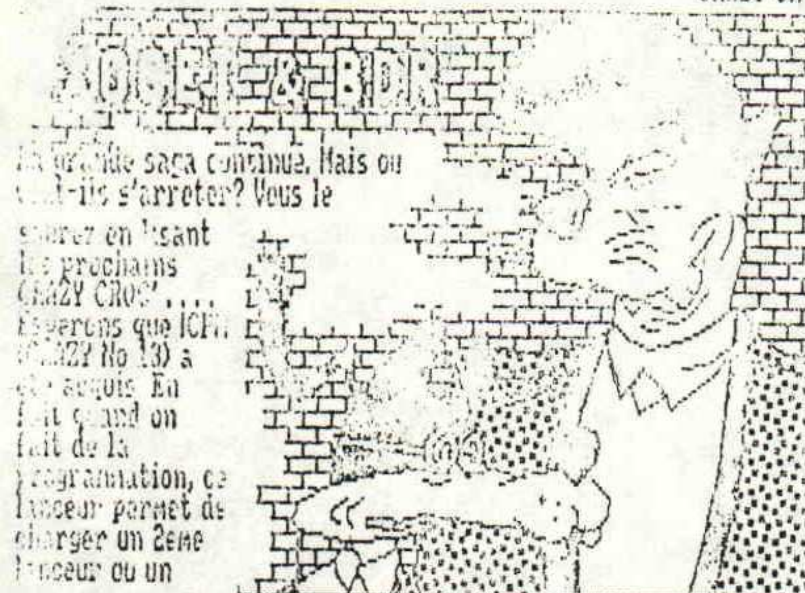 & BDR
grande saga continue. Mais ou
s'arreter? Vous le
saurez en lisant
les prochains
CRAZY CROC' ....
Esperons que ICPM
(CRAZY No 13) a
ete acquis. En
fait quand on
fait de la
programmation, ce
lanceur permet de
charger un 2eme
lanceur ou un